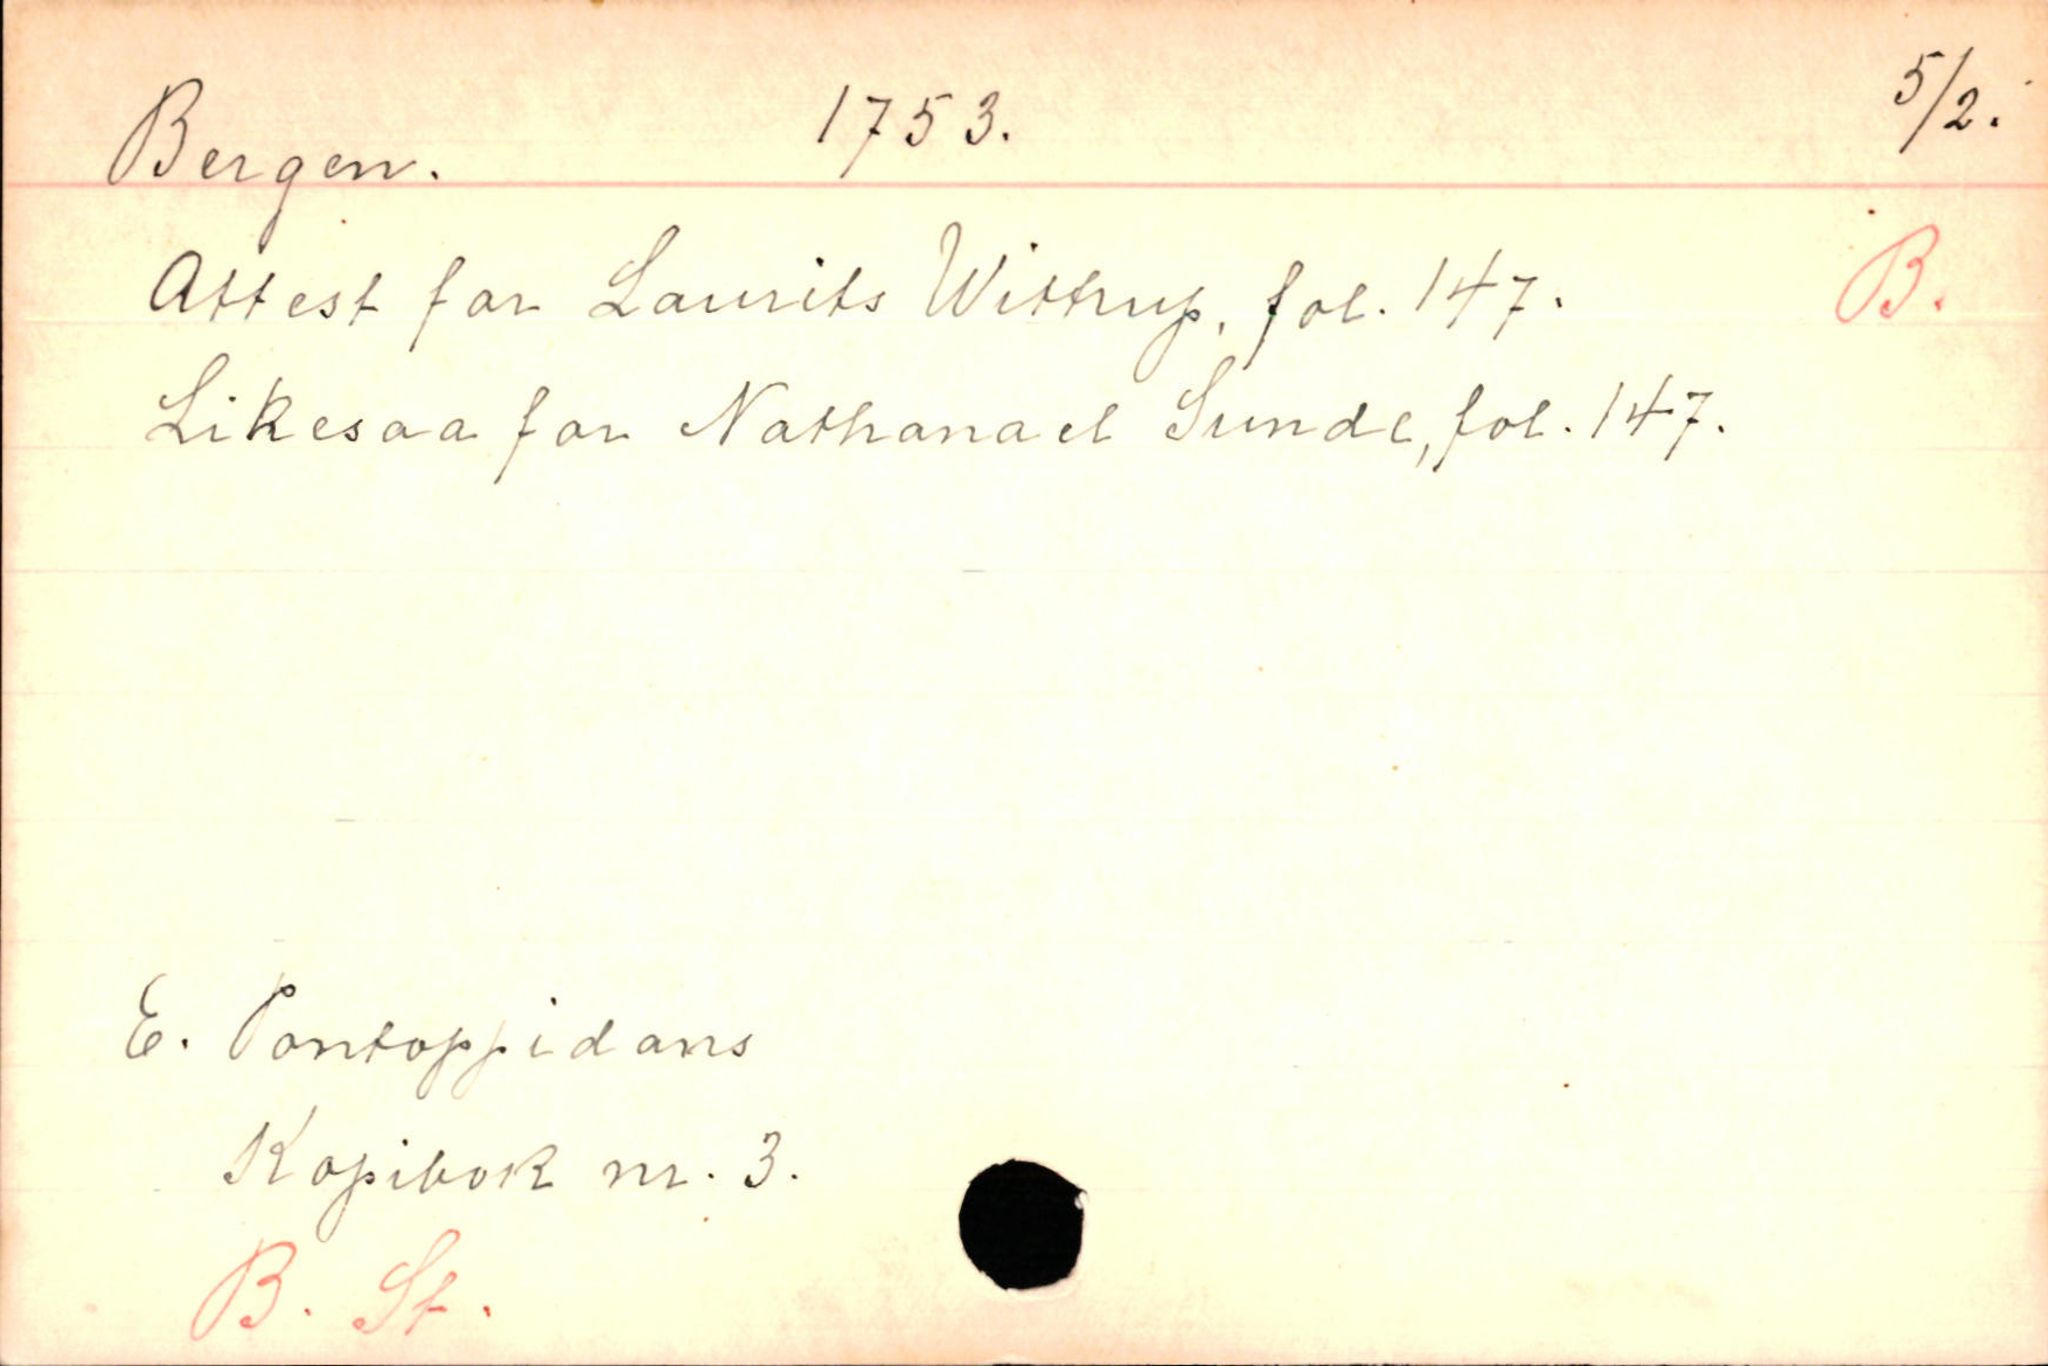 Bergen. 1753. 5/2.
Attest for Laurits Wittrup, fol. 147. B.
Likesaa for Nathanael Sunde, fol. 147.
E. Pontoppidans
Kopibok nr. 3.
B. St.